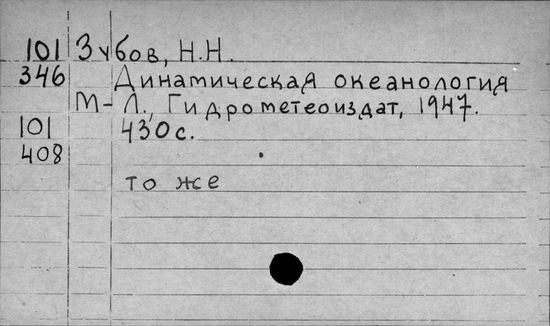 101 Зубов, Н.Н.
346 Динамическая океанология
М-Л., Гидрометеоиздат, 1947.
101 430 с.
408
то же